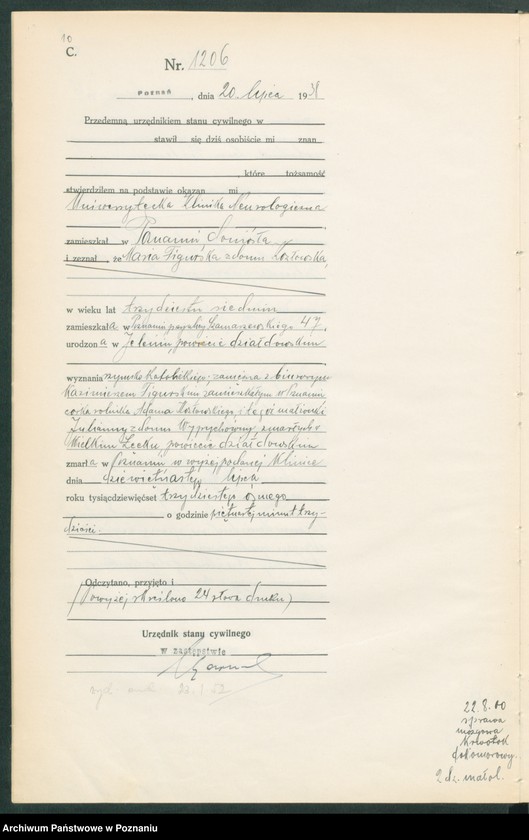 10
C.
Nr. 1206
Poznań, dnia 20 lipca 1938
Przedemną urzędnikiem stanu cywilnego w
stawił się dziś osobiście mi znan
, które tożsamość
stwierdziłem na podstawie okazan mi
Uniwersytecka Klinika Neurologiczna
zamieszkał w Poznaniu, doniosła
i zeznał, że Maria Figurska z domu Kozłowska,
w wieku lat trzydzieści siedm
zamieszkała w Poznaniu przy ulicy Szamarzewskiego 47,
urodzona w Jeleniu, powiecie działdowskim
wyznania rzymsko katolickiego; zamężna z
Kazimierzem Figurskim zamieszkałym w Poznaniu
córka rolnika Adama Kozłowskiego i tegoż małżonki
Julianny z domu zmarłych w
Wielkim Łęcku, powiecie działdowskim
zmarła w Poznaniu w wyżej podanej klinice
dnia dziewiętnastego lipca
roku tysiącdziewięćset trzydziestego ósmego
o godzinie piętnastej minut trzy-
dzieści.
Odczytano, przyjęto i
(Powyżej skreślono 24 słowa druku)
Urzędnik stanu cywilnego
w zastępstwie
22.8.00
sprawa
mózgowa
2 dz. małol.
Archiwum Państwowe w Poznaniu